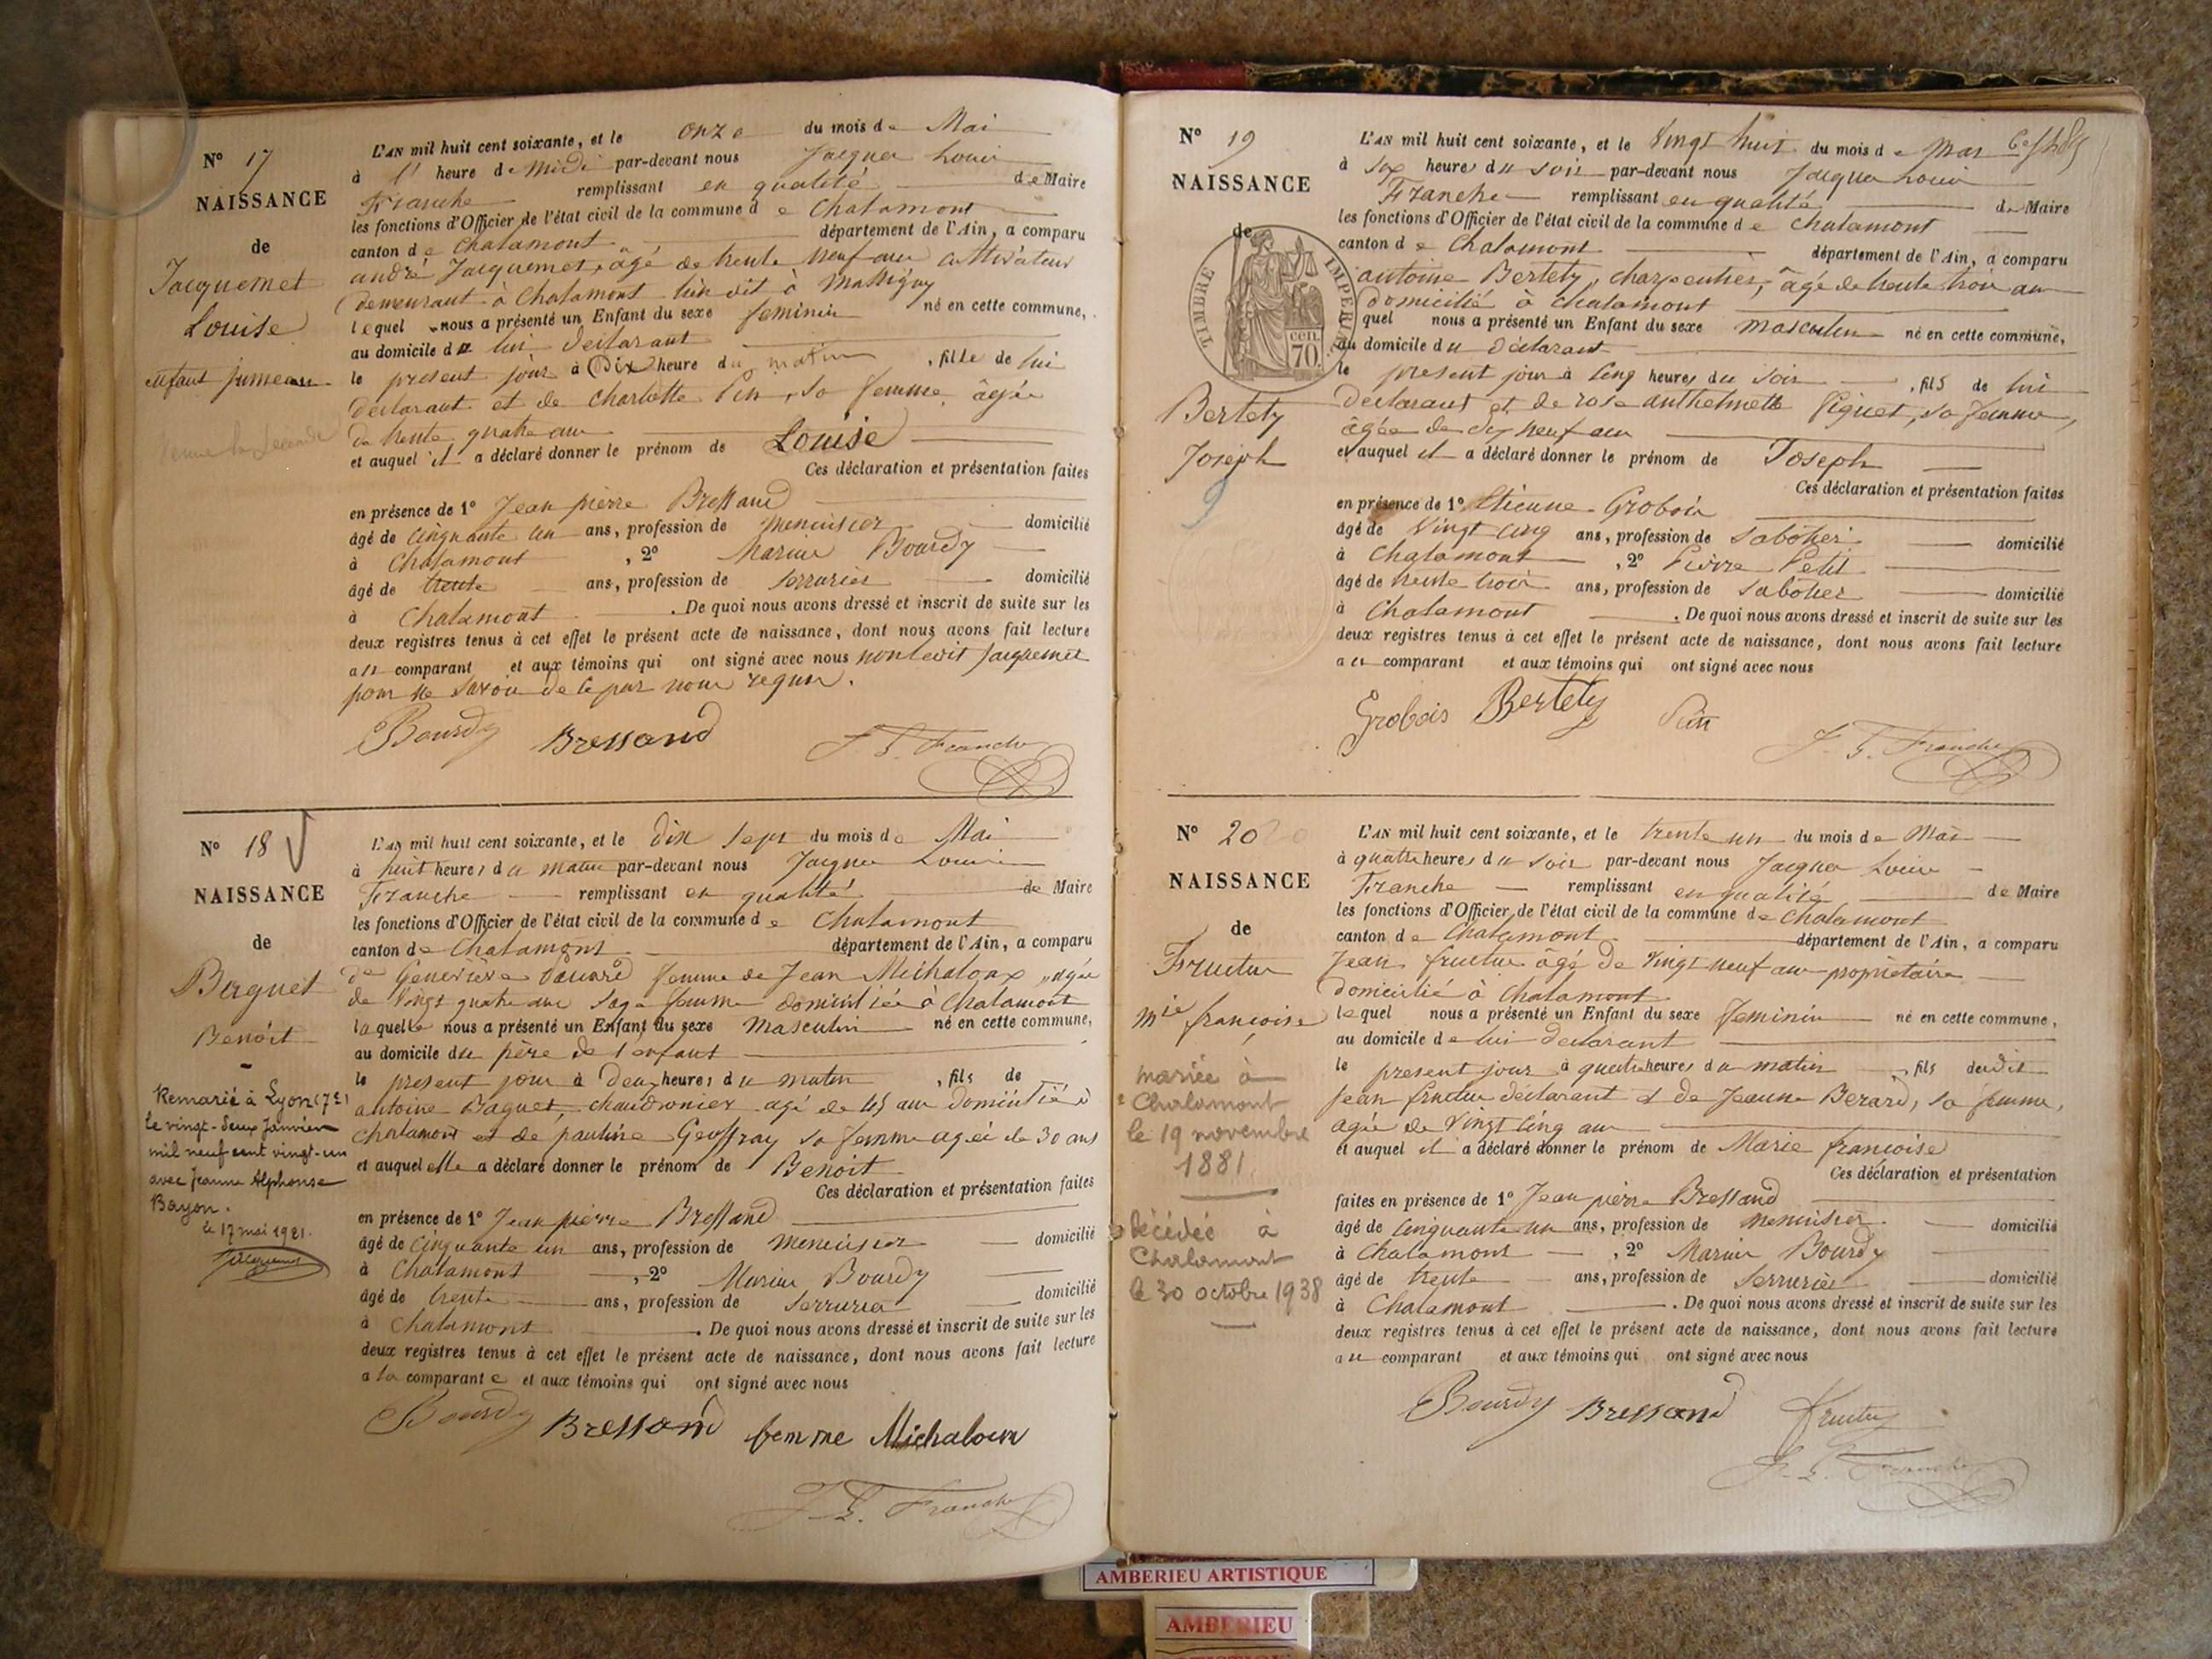 N° 17
NAISSANCE
de
Jacquemet
Louise
enfant jumeau
venue la seconde
L'AN mil huit cent soixante, et le onze du mois de Mai
à l' heure de midi par-devant nous Jacques Louis
Franche remplissant en qualité de Maire
les fonctions d'Officier de l'état civil de la commune de Chalamont
canton de Chalamont département de l'Ain, a comparu
andré Jacquemet, agé de trente neuf ans cultivateur
demeurant à Chalamont lieu dit à Massigny
lequel nous a présenté un Enfant du sexe feminin né en cette commune,
au domicile de lui declarant
le present jour à Dix heure du matin, fille de lui
declarant et de charlotte Pin, sa femme, âgée
de trente quatre ans
et auquel il a déclaré donner le prénom de Louise
Ces déclaration et présentation faites
en présence de 1° Jean pierre Bressand
âgé de cinquante un ans, profession de menuisier domicilié
à Chalamont, 2° Marius Bourdy
âgé de trente ans, profession de serrurier domicilié
à Chalamont. De quoi nous avons dressé et inscrit de suite sur les
deux registres tenus à cet effet le présent acte de naissance, dont nous avons fait lecture
au comparant et aux témoins qui ont signé avec nous non ledit Jacquemet
pour ne savoir de ce par nous requis.
Bourdy Bressand J. L. Franche
N° 18
NAISSANCE
de
Berguet
Benoit
Remarié à Lyon (7e)
le vingt-deux Janvier
mil neuf cent vingt-un
avec Jeanne Alphonse
Bayon.
le 17 mai 1921.
L'AN mil huit cent soixante, et le dix sept du mois de Mai
à huit heures du matin par-devant nous Jacques Louis
Franche remplissant en qualité de Maire
les fonctions d'Officier de l'état civil de la commune de Chalamont
canton de Chalamont département de l'Ain, a comparu
de Genevière femme de Jean Michaloux, agée
de vingt quatre ans sage femme domiciliée à Chalamont
laquelle nous a présenté un Enfant du sexe Masculin né en cette commune,
au domicile du père de l'enfant
le present jour à Deux heures du matin, fils de
antoine Baguet, chaudronier agé de 45 ans domicilié à
Chalamont et de pauline Geoffray sa femme agée de 30 ans
et auquel elle a déclaré donner le prénom de Benoit
Ces déclaration et présentation faites
en présence de 1° Jean pierre Bressand
âgé de cinquante un ans, profession de menuisier domicilié
à Chalamont, 2° Marius Bourdy
âgé de trente ans, profession de serrurier domicilié
à Chalamont. De quoi nous avons dressé et inscrit de suite sur les
deux registres tenus à cet effet le présent acte de naissance, dont nous avons fait lecture
a la comparante et aux témoins qui ont signé avec nous
Bourdy Bressand femme Michaloux
J. L. Franche
N° 19
NAISSANCE
de
TIMBRE IMPERIAL
CEN.
70.
Bertety
Joseph
9
L'AN mil huit cent soixante, et le vingt huit du mois de Mai
à six heures du soir par-devant nous Jacques Louis
Franche remplissant en qualité de Maire
les fonctions d'Officier de l'état civil de la commune de Chalamont
canton de Chalamont département de l'Ain, a comparu
antoine Bertety, charpentier, âgé de trente trois ans
domicilié à Chalamont
quel nous a présenté un Enfant du sexe masculin né en cette commune,
au domicile du déclarant
le present jour à cinq heures du soir, fils de lui
declarant et de rose anthelmette Piguet, sa femme,
âgée de dix neuf ans
et auquel il a déclaré donner le prénom de Joseph
Ces déclaration et présentation faites
en présence de 1° Etienne Grobois
âgé de vingt cinq ans, profession de sabotier domicilié
à Chalamont, 2° Pierre Petit
âgé de trente trois ans, profession de sabotier domicilié
à Chalamont. De quoi nous avons dressé et inscrit de suite sur les
deux registres tenus à cet effet le présent acte de naissance, dont nous avons fait lecture
au comparant et aux témoins qui ont signé avec nous
Grobois Bertety Petit
J. L. Franche
N° 20
NAISSANCE
de
Fructus
Mie françoise
mariée à
Chalamont
le 19 novembre
1881
Décédée à
Chalamont
le 30 octobre 1938
L'AN mil huit cent soixante, et le trente un du mois de Mai
à quatre heures du soir par-devant nous Jacques Louis
Franche remplissant en qualité de Maire
les fonctions d'Officier de l'état civil de la commune de Chalamont
canton de Chalamont département de l'Ain, a comparu
Jean fructus agé de vingt neuf ans propriétaire
domicilié à Chalamont
lequel nous a présenté un Enfant du sexe feminin né en cette commune,
au domicile de lui declarant
le present jour à quatre heures du matin, fils dudit
Jean fructus declarant et de Jeanne Berard, sa femme,
agée de vingt cinq ans
et auquel il a déclaré donner le prénom de Marie françoise
Ces déclaration et présentation
faites en présence de 1° Jean pierre Bressand
âgé de cinquante un ans, profession de menuisier domicilié
à Chalamont, 2° Marius Bourdy
âgé de trente ans, profession de serrurier domicilié
à Chalamont. De quoi nous avons dressé et inscrit de suite sur les
deux registres tenus à cet effet le présent acte de naissance, dont nous avons fait lecture
au comparant et aux témoins qui ont signé avec nous
Bourdy Bressand fructus
J. L. Franche
AMBERIEU ARTISTIQUE
AMBERIEU